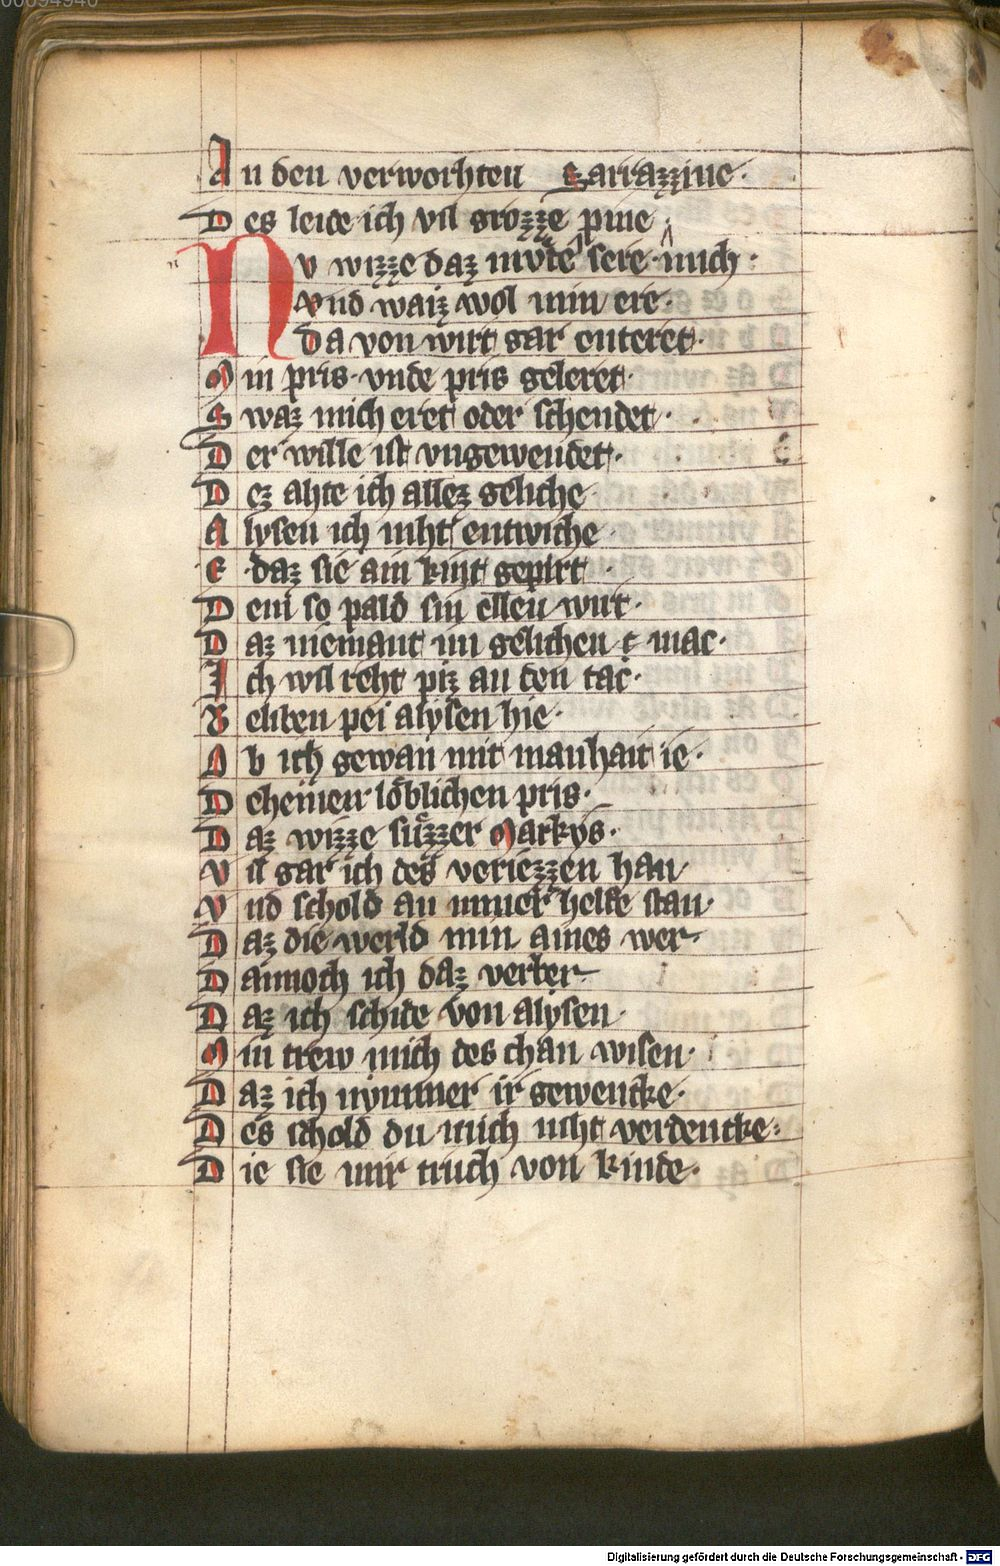 An den verworhten Sarrazzine·
Des leide ich vil grozze pine
Nv wizze daz mvͤte sere mich·
vnd waiz wol min ere·
Da von wirt gar enteret·
Min pris· vnde pris geleret·
Swaz mich eret oder schendet·
Der wille ist vngewendet·
Dez ahte ich allez geliche·
Alysen ich niht entwiche·
E daz sie ain kint gepirt·
Dem so pald sin ellen wirt·
Daz niemant im gelichen mac·
Ich wil reht piz an den tac·
Beliben pei alysen hie·
Ob ich gewan mit manhait ie·
Deheinen loͤblichen pris·
Daz wizze suͤzzer Markys·
Vil gar ich des veriezzen han
Vnd schold an miner helfe stan·
Daz die werld min aines wer·
Dannoch ich daz verber
Daz ich schide von alysen·
Min trew mich des chan wisen·
Daz ich nymmer ir gewencke·
Des schold du mich niht verdencke·
Die sie mir truch von kinde·
Digitalisierung gefördert durch die Deutsche Forschungsgemeinschaft - DFG